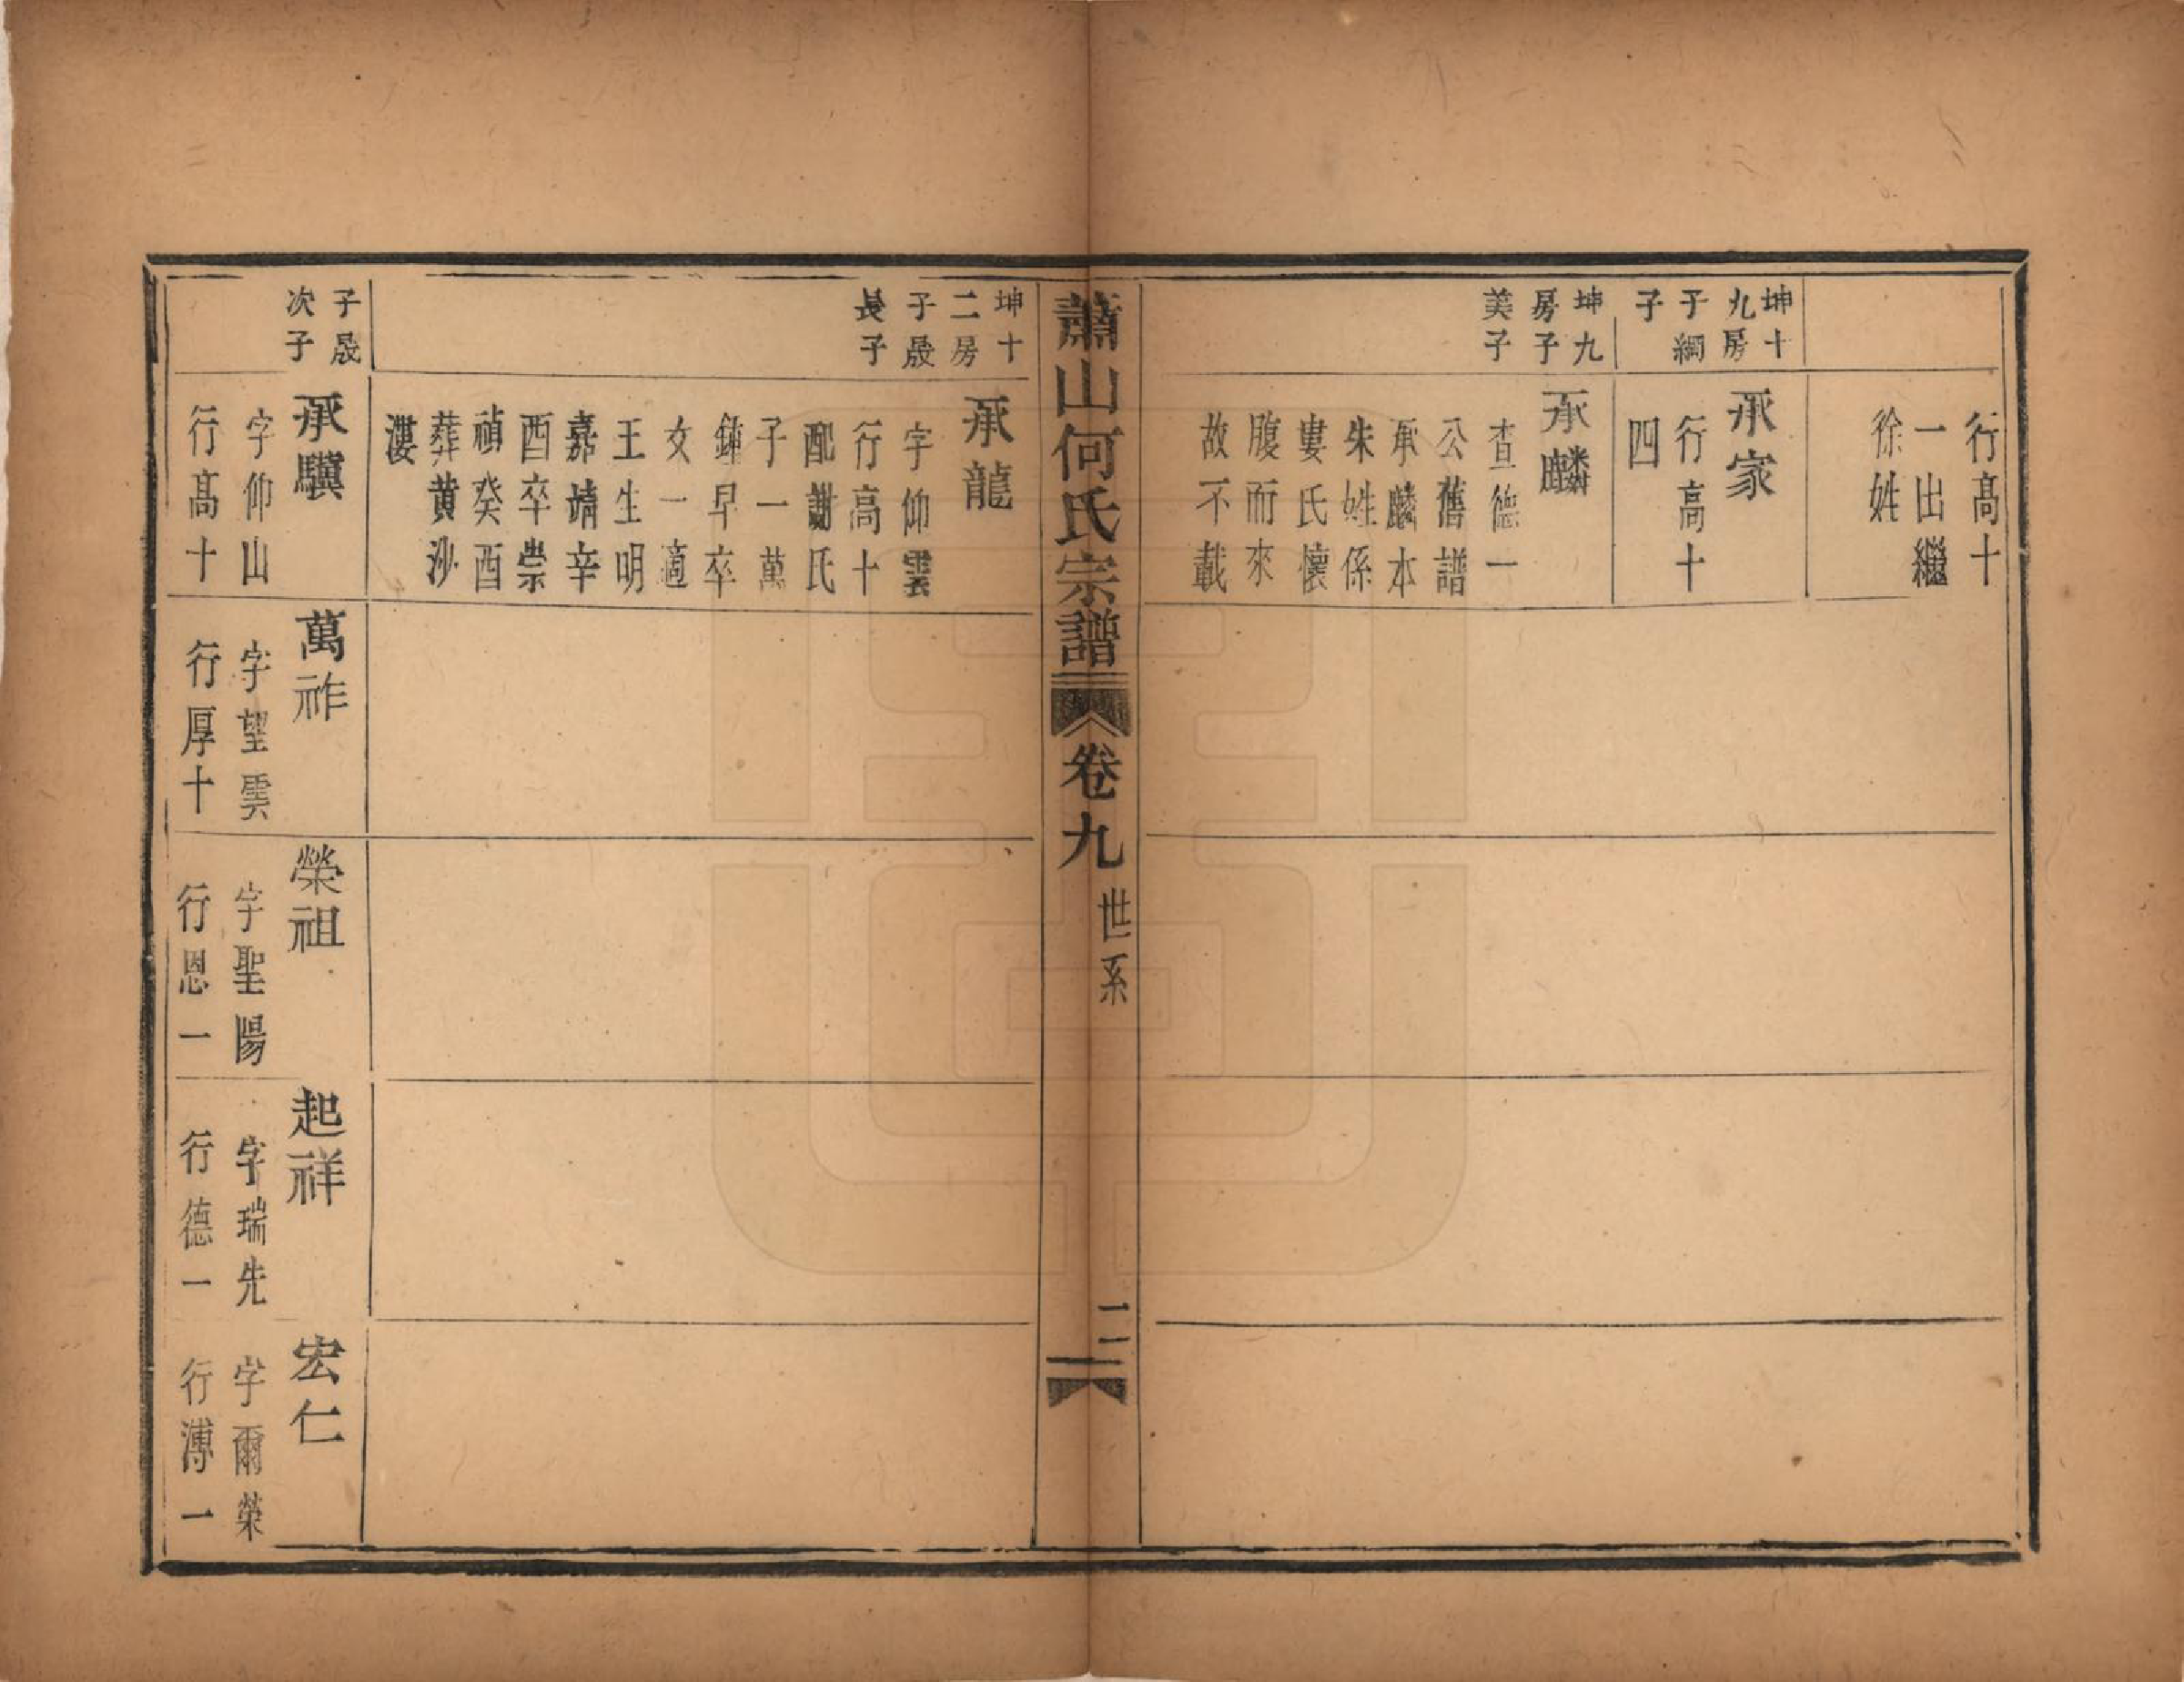 行高十
一出繼
徐姓
坤十
九房
子綱
子
承家
行高十
四
坤九
房子
美子
承麟
查德一
公舊譜
承麟本
朱姓係
婁氏懷
腹而來
故不載
蕭山何氏宗譜
卷九
世系
二
坤十
二房
子晟
長子
承龍
字仰雲
行高十
配謝氏
子一萬
鍾早卒
女一適
王生明
嘉靖辛
酉卒崇
禎癸酉
葬黄沙
漊
子晟
次子
承驥
字仰山
行高十
萬祚
字望雲
行厚十
榮祖
字聖陽
行恩一
起祥
字瑞先
行德一
宏仁
字爾榮
行溥一